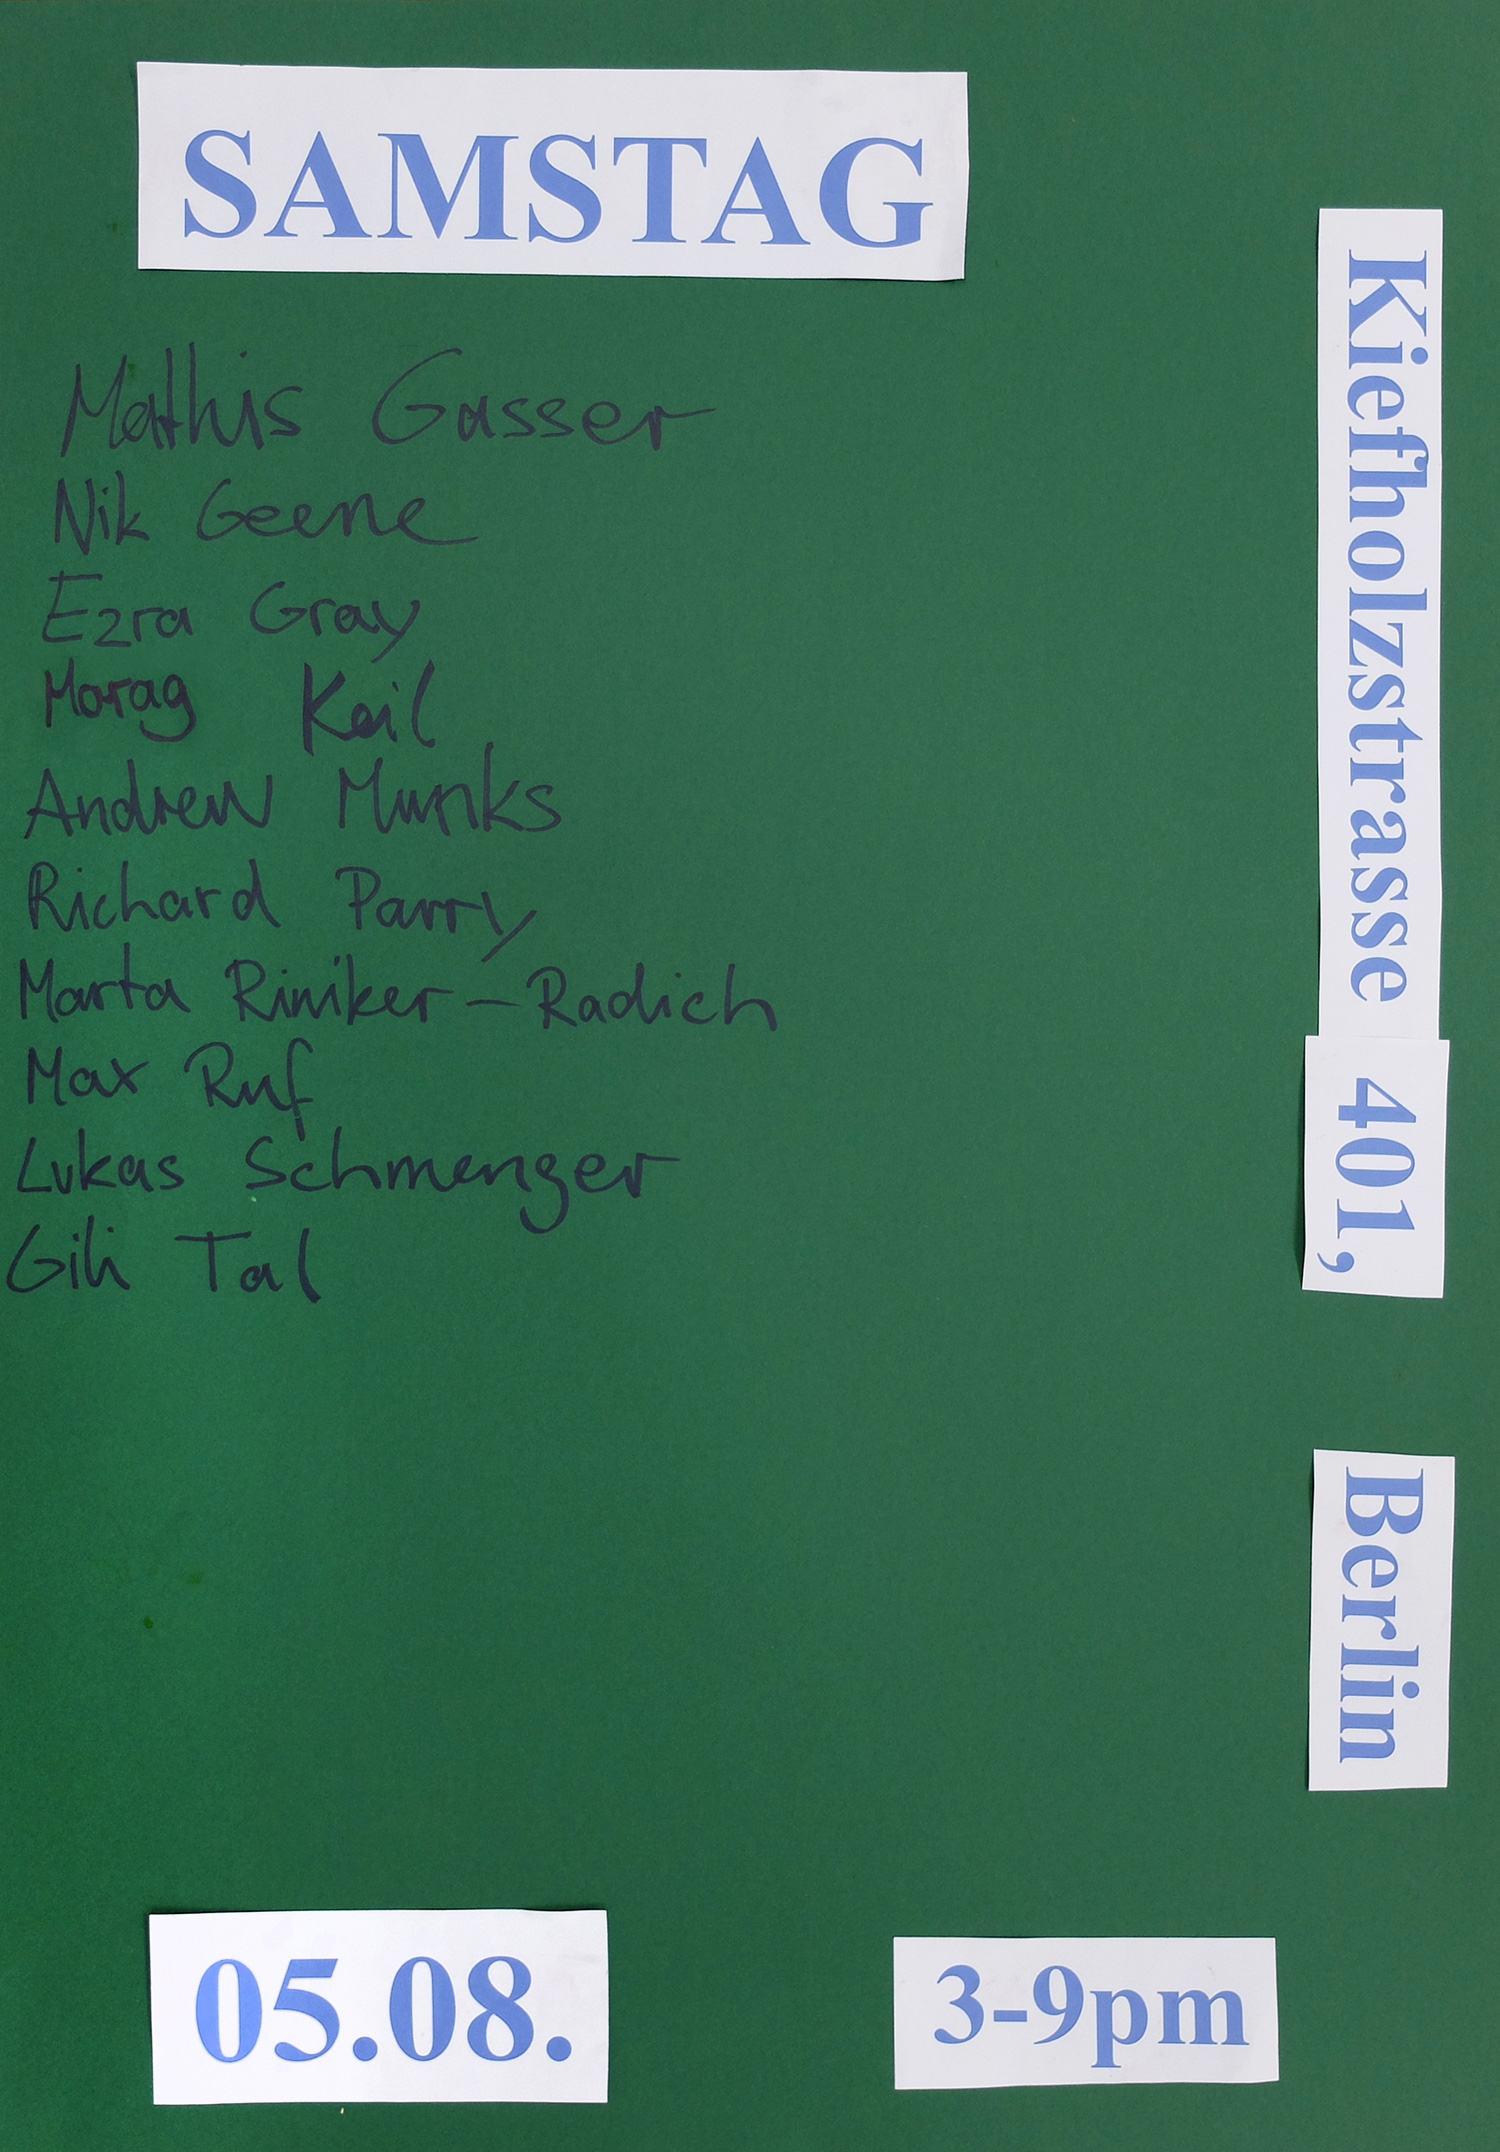 SAMSTAG
Mathis Gasser
Nik Geene
Ezra Gray
Morag Keil
Andrew Munks
Richard Parry
Marta Riniker-Radich
Max Ruf
Lukas Schmenger
Gili Tal
Kiefholzstrasse 401,
Berlin
05.08.
3-9pm